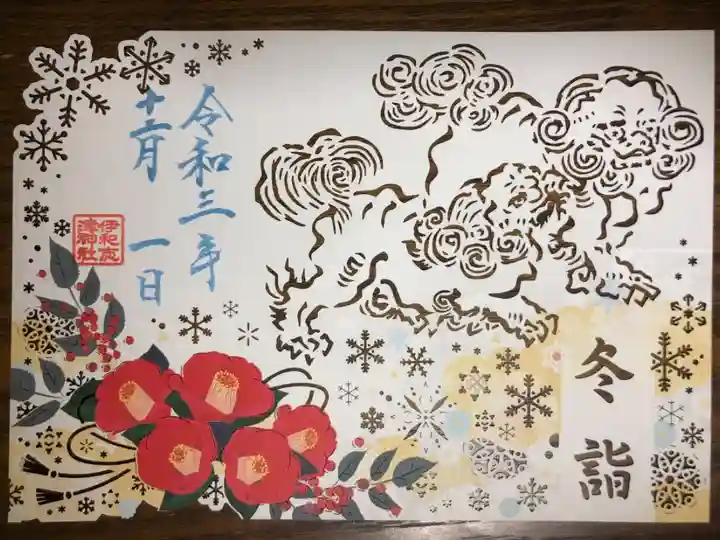 冬詣
令和三年
十二月一日
伊和志
津神社